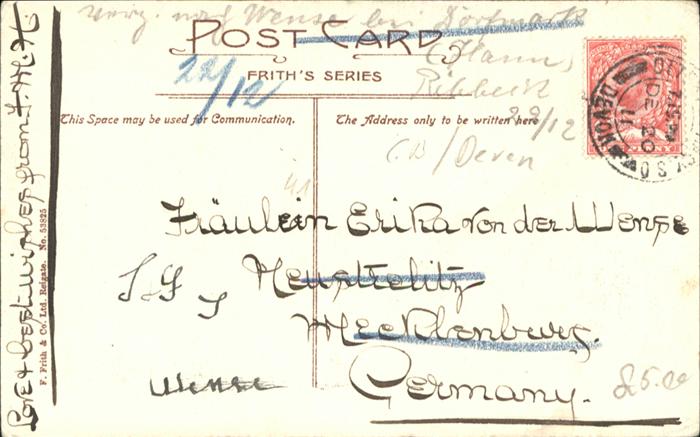 verz. nach Wense bei Dorfmark
POST CARD
(Hann.)
22/12
FRITH'S SERIES
Ribbeck
22/12
This Space may be used for Communication.
The Address only to be written here
/Devon
Fräulein Erika von der Wense
Neustrelitz
Mecklenburg.
Wense
Germany.
£5.00
Love & best wishes from F. M. H.
F. Frith & Co. Ltd. Reigate. No. 53825
DEVON
DE 20
11
PENNY